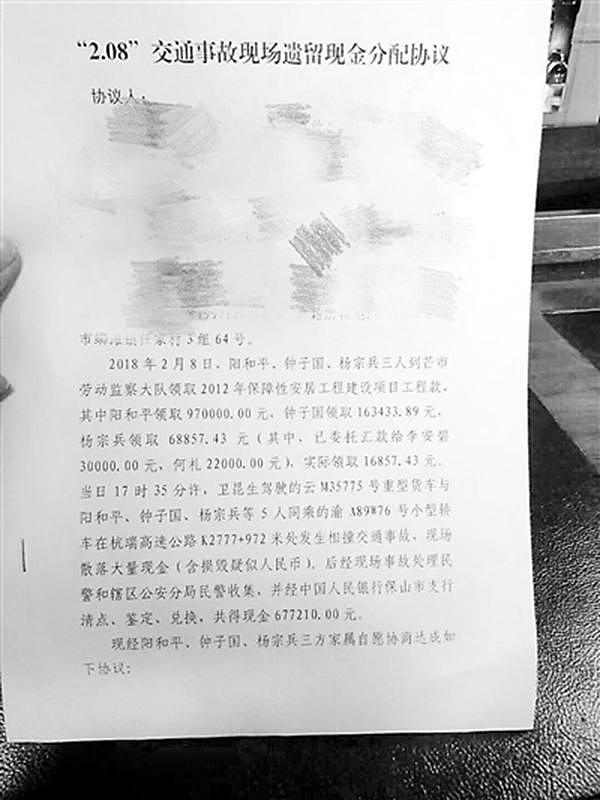 “2.08”交通事故现场遗留现金分配协议
协议人：
3组64号。
2018年2月8日，阳和平、钟子国、杨宗兵三人到芒市
劳动监察大队领取2012年保障性安居工程建设项目工程款，
其中阳和平领取970000.00元，钟子国领取163433.89元，
杨宗兵领取68857.43元（其中，已委托汇款给李安碧
30000.00元，何札22000.00元），实际领取16857.43元。
当日17时35分许，卫昆生驾驶的云M35775号重型货车与
阳和平、钟子国、杨宗兵等5人同乘的渝A89W76号小型轿
车在杭瑞高速公路K2777+972米处发生相撞交通事故，现场
散落大量现金（含损毁疑似人民币），后经现场事故处理民
警和辖区公安分局民警收集，并经中国人民银行保山市支行
清点、鉴定、兑换，共得现金677210.00元。
现经阳和平、钟子国、杨宗兵三方家属自愿协商达成如
下协议：